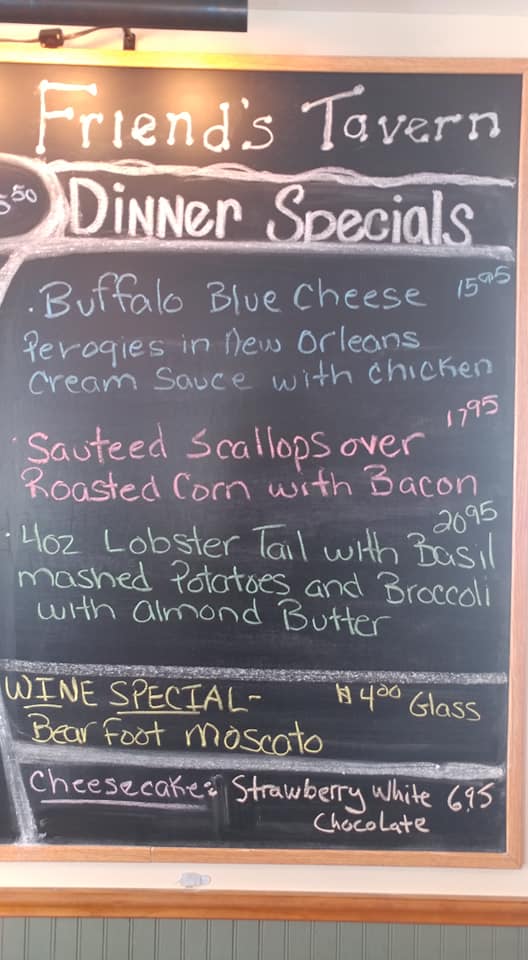 Friend's Tavern
Dinner Specials
5⁵⁰
· Buffalo Blue Cheese 15⁹⁵
Perogies in New Orleans
Cream Sauce with Chicken
17⁹⁵
· Sauteed Scallops over
Roasted Corn with Bacon
20⁹⁵
· 4oz Lobster Tail with Basil
mashed Potatoes and Broccoli
with almond Butter
WINE SPECIAL- $4⁰⁰ Glass
Bear Foot Moscato
Cheesecake: Strawberry White 6.95
Chocolate